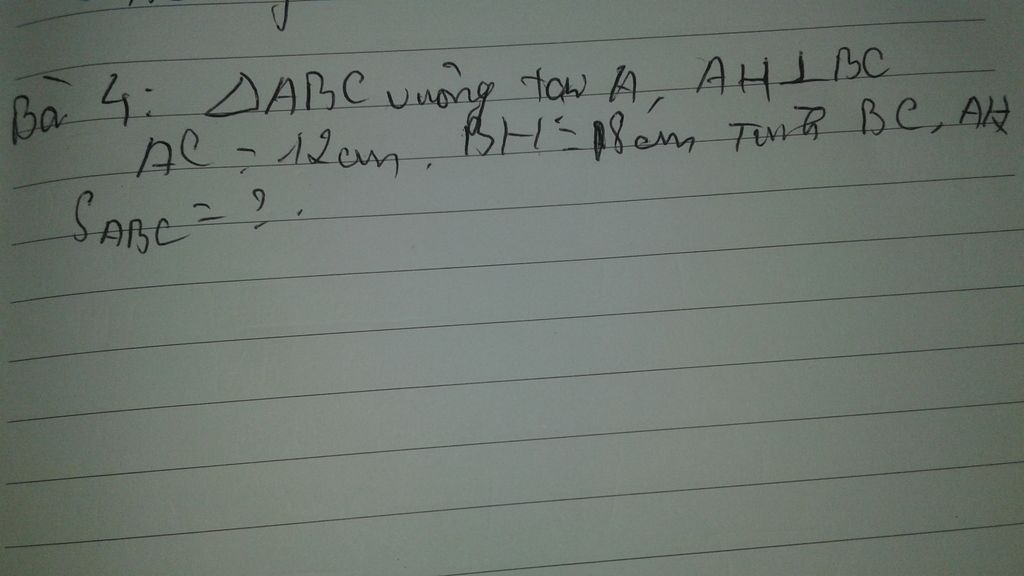 Bài 4: △ABC vuông tại A, AH⊥BC
AC = 12cm. BH = 18cm Tính BC, AH
S_ABC = ?.